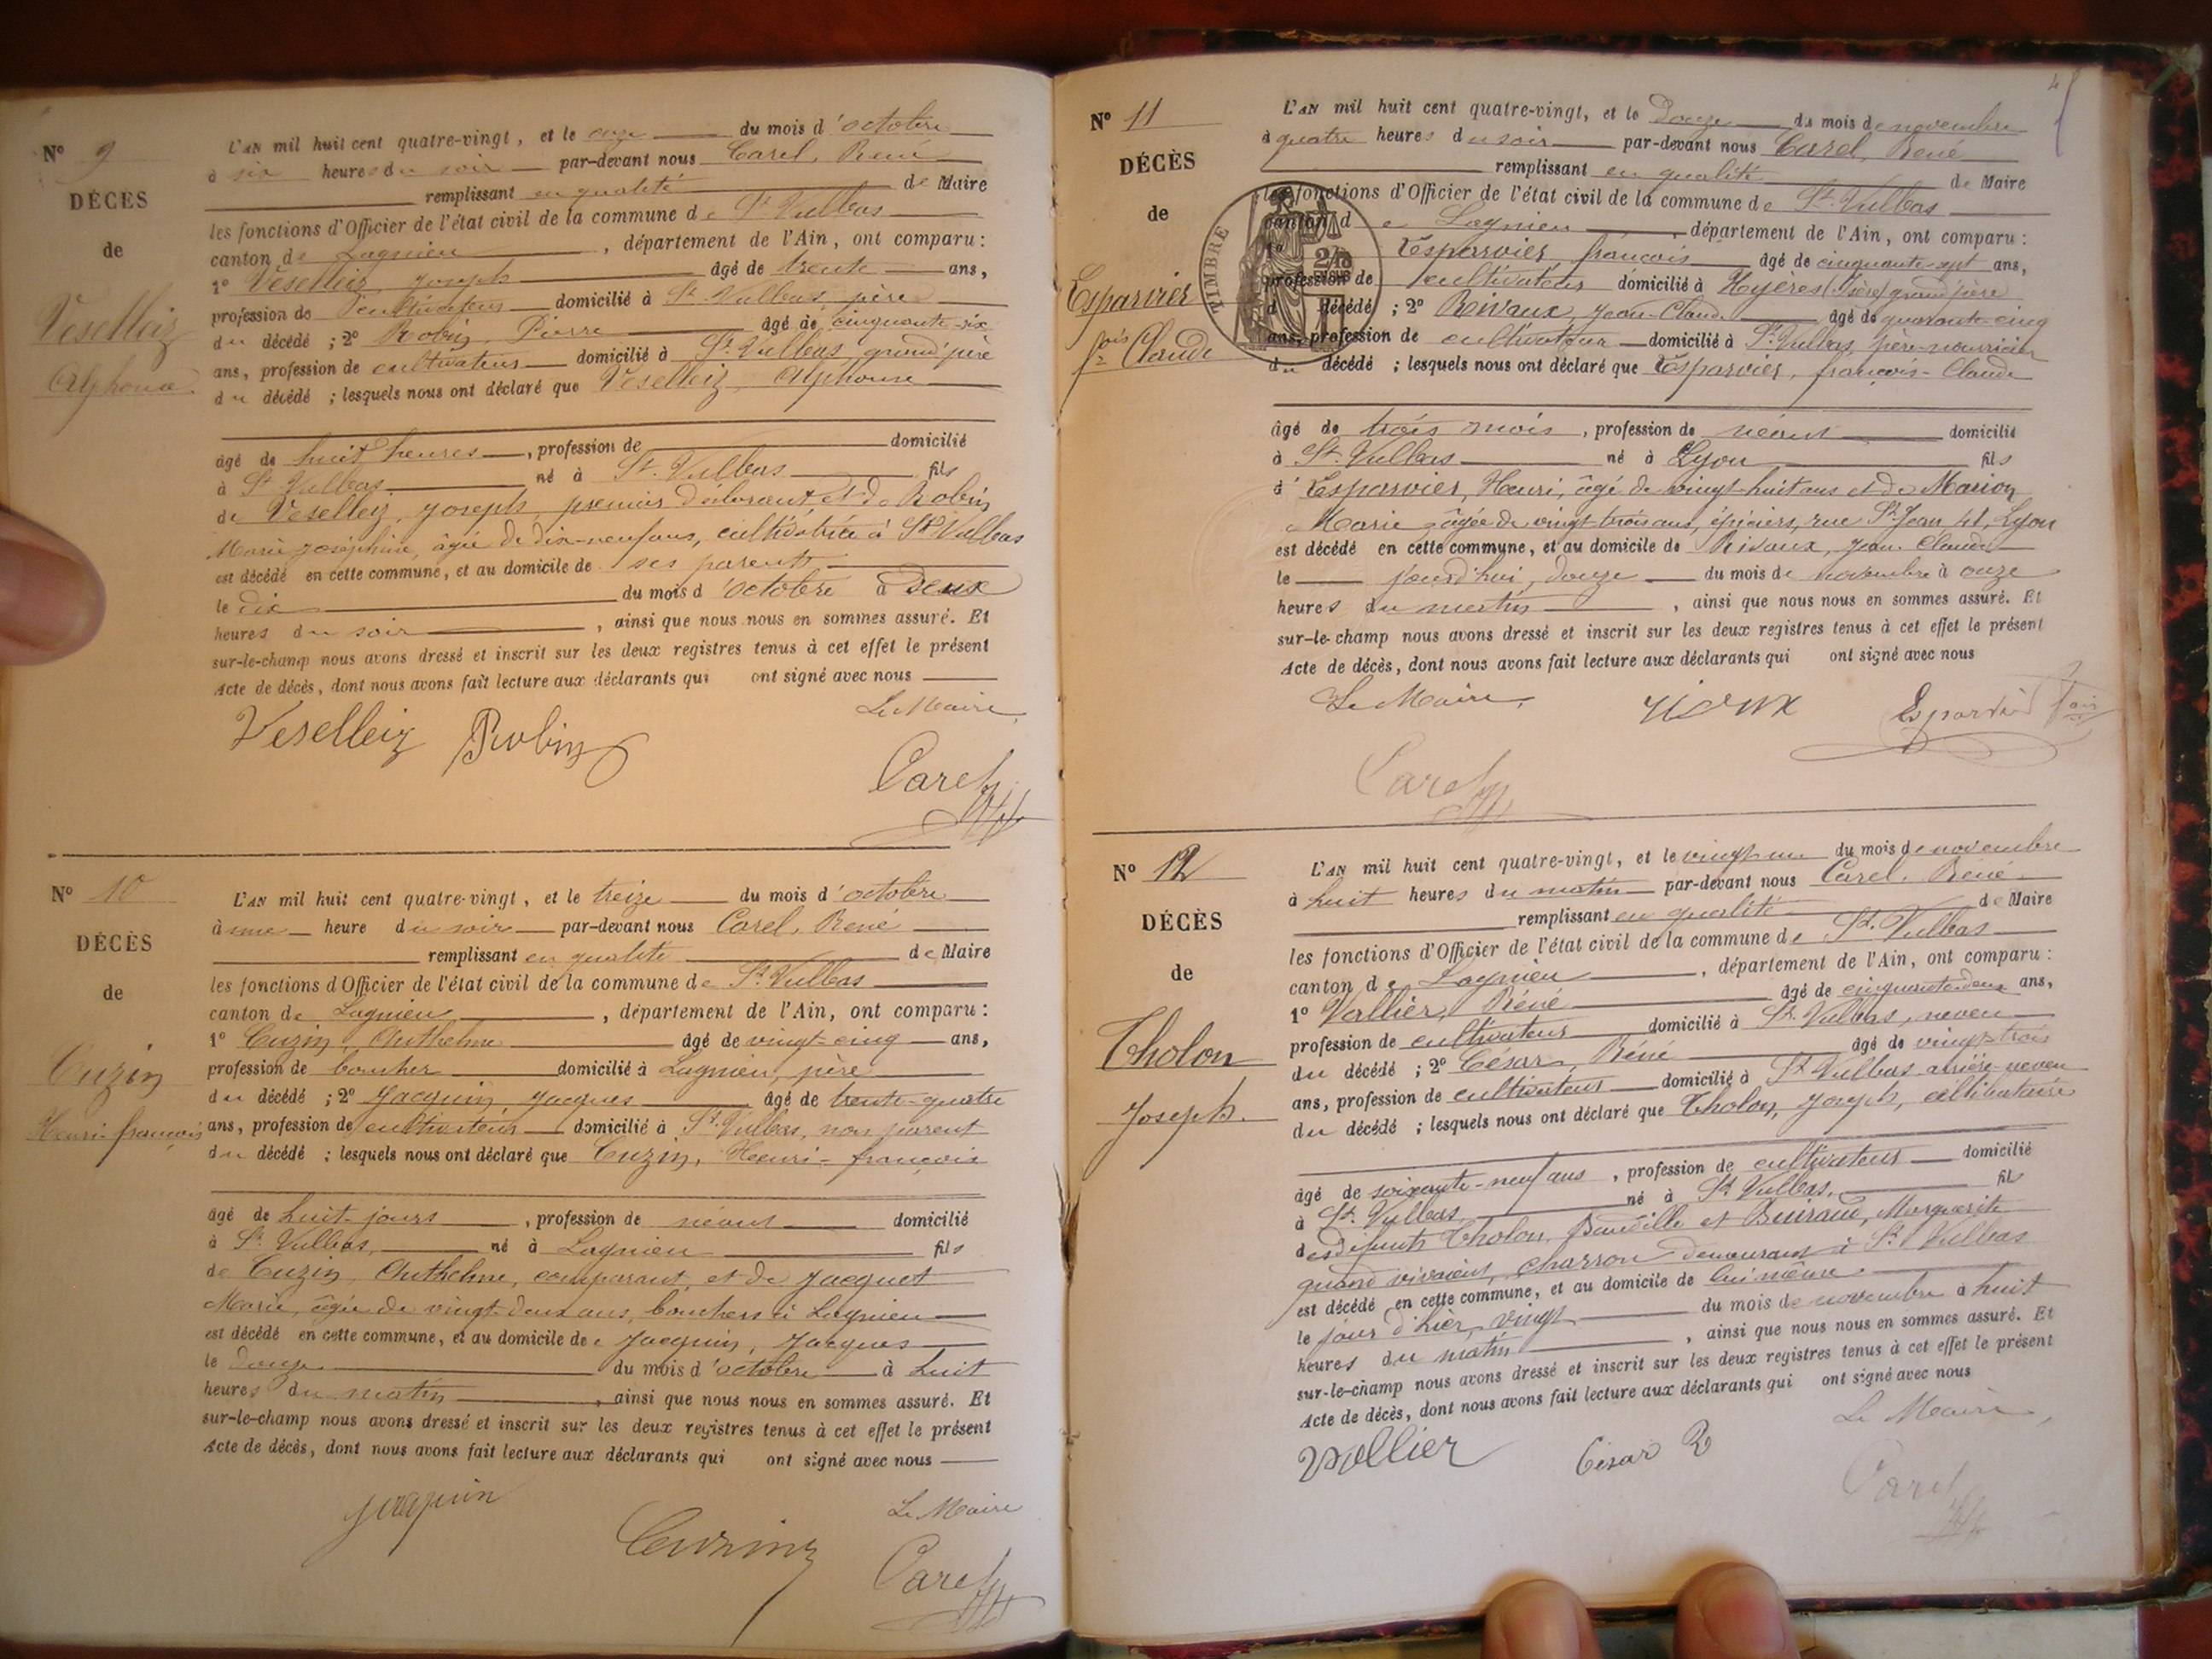 N° 9
DÉCÈS
de
Veselleiz
Alphonse
L'AN mil huit cent quatre-vingt, et le onze du mois d'octobre
à six heures du soir par-devant nous Carel, René
remplissant en qualité de Maire
les fonctions d'Officier de l'état civil de la commune de St Vulbas
canton de Lagnieu, département de l'Ain, ont comparu :
1° Veselleiz, Joseph âgé de trente ans,
profession de cultivateur domicilié à St Vulbas, père
du décédé ; 2° Robin, Pierre âgé de cinquante-six
ans, profession de cultivateur domicilié à St Vulbas, grand'père
du décédé ; lesquels nous ont déclaré que Veselleiz, Alphonse
âgé de huit heures, profession de domicilié
à St Vulbas né à St Vulbas fils
de Veselleiz, Joseph, premier déclarant et de Robin
Marie Joséphine, âgée de dix-neuf ans, cultivatrice à St Vulbas
est décédé en cette commune, et au domicile de ses parents
le dix du mois d'octobre à deux
heures du soir, ainsi que nous nous en sommes assuré. Et
sur-le-champ nous avons dressé et inscrit sur les deux registres tenus à cet effet le présent
Acte de décès, dont nous avons fait lecture aux déclarants qui ont signé avec nous
Le Maire,
Veselleiz Robin
Carel
N° 10
DÉCÈS
de
Cuzin
Henri-françois
L'AN mil huit cent quatre-vingt, et le treize du mois d'octobre
à une heure du soir par-devant nous Carel, René
remplissant en qualité de Maire
les fonctions d'Officier de l'état civil de la commune de St Vulbas
canton de Lagnieu, département de l'Ain, ont comparu :
1° Cuzin, Anthelme âgé de vingt-cinq ans,
profession de boucher domicilié à Lagnieu, père
du décédé ; 2° Jacquin Jacques âgé de trente-quatre
ans, profession de cultivateur domicilié à St Vulbas, non parent
du décédé ; lesquels nous ont déclaré que Cuzin, Henri-françois
âgé de huit jours, profession de néant domicilié
à St Vulbas, né à Lagnieu fils
de Cuzin, Anthelme, comparant, et de Jacquet
Marie, âgée de vingt-deux ans, bouchers à Lagnieu
est décédé en cette commune, et au domicile de Jacquin, Jacques
le douze du mois d'octobre à huit
heures du matin, ainsi que nous nous en sommes assuré. Et
sur-le-champ nous avons dressé et inscrit sur les deux registres tenus à cet effet le présent
Acte de décès, dont nous avons fait lecture aux déclarants qui ont signé avec nous
Le Maire
Carel
N° 11
DÉCÈS
de
Esparvier
fois Claude
TIMBRE
L'AN mil huit cent quatre-vingt, et le Douze du mois de novembre
à quatre heures du soir par-devant nous Carel, René
remplissant en qualité de Maire
les fonctions d'Officier de l'état civil de la commune de St Vulbas
canton de Lagnieu, département de l'Ain, ont comparu :
1° Esparvier, françois âgé de cinquante-sept ans,
profession de cultivateur domicilié à Hyères (Isère) grand'père
d décédé ; 2° Rivaux, Jean-Claude âgé de quarante-cinq
ans, profession de cultivateur domicilié à St Vulbas, père-nourricier
du décédé ; lesquels nous ont déclaré que Esparvier, françois-Claude
âgé de trois mois, profession de néant domicilié
à St Vulbas né à Lyon fils
d'Esparvier, Henri, âgé de vingt-huit ans et de Marion
Marie âgée de vingt trois ans, épiciers, rue St Jean 41, Lyon
est décédé en cette commune, et au domicile de Rivaux, Jean Claude
le jourd'hui, douze du mois de novembre à onze
heures du matin, ainsi que nous nous en sommes assuré. Et
sur-le-champ nous avons dressé et inscrit sur les deux registres tenus à cet effet le présent
Acte de décès, dont nous avons fait lecture aux déclarants qui ont signé avec nous
Le Maire,
Carel
N° 12
DÉCÈS
de
Tholon
Joseph.
L'AN mil huit cent quatre-vingt, et le vingt un du mois de novembre
à huit heures du matin par-devant nous Carel, René
remplissant en qualité de Maire
les fonctions d'Officier de l'état civil de la commune de St Vulbas
canton de Lagnieu, département de l'Ain, ont comparu :
1° Vallier, Réné âgé de cinquante-deux ans,
profession de cultivateur domicilié à St Vulbas, neveu
du décédé ; 2° César, Réné âgé de vingt-trois
ans, profession de cultivateur domicilié à St Vulbas arrière-neveu
du décédé ; lesquels nous ont déclaré que Tholon, Joseph, célibataire
âgé de soixante-neuf ans, profession de cultivateur domicilié
à St Vulbas né à St Vulbas, fils
des défunts Tholon, et Marguerite
quand vivaient, charron demeurant à St Vulbas
est décédé en cette commune, et au domicile de lui même
le jour d'hier, vingt du mois de novembre à huit
heures du matin, ainsi que nous nous en sommes assuré. Et
sur-le-champ nous avons dressé et inscrit sur les deux registres tenus à cet effet le présent
Acte de décès, dont nous avons fait lecture aux déclarants qui ont signé avec nous
Le Maire,
Vallier César R
Carel